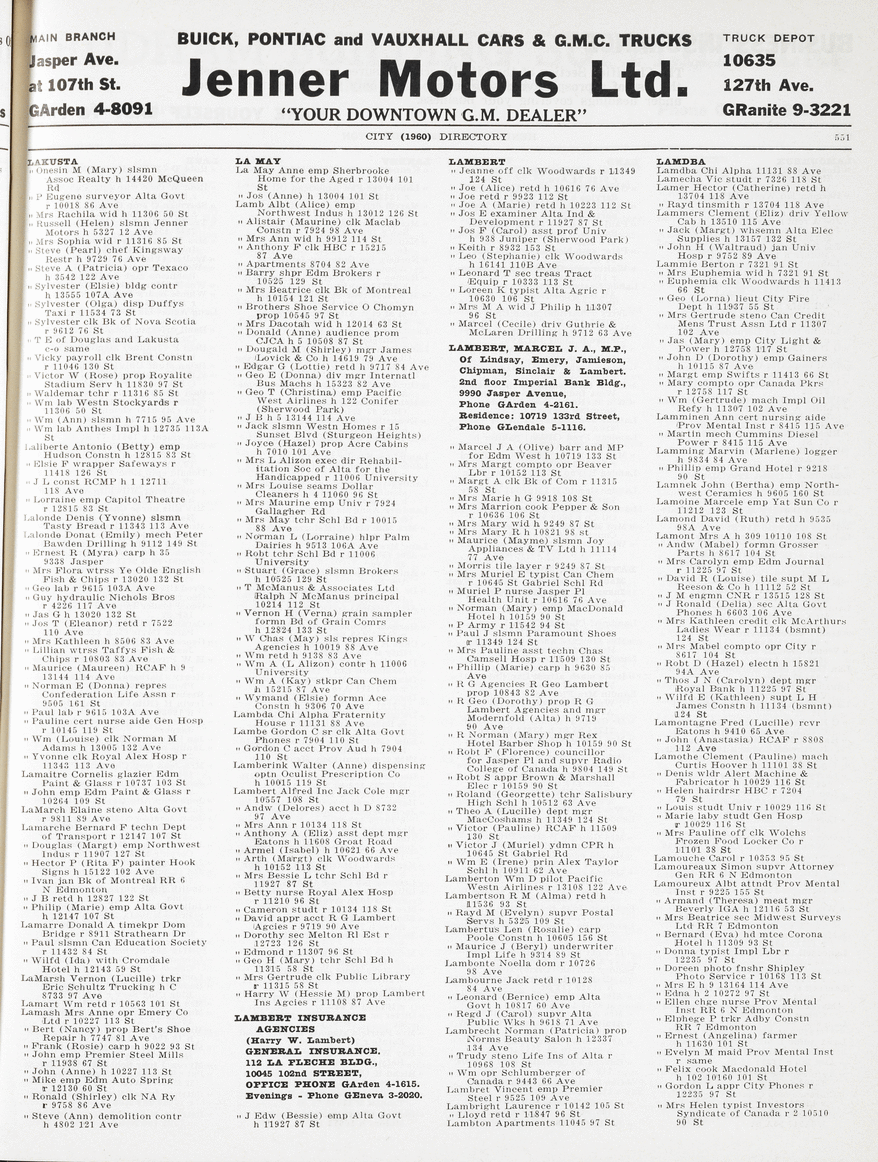 MAIN BRANCH
Jasper Ave.
at 107th St.
GArden 4-8091
BUICK, PONTIAC and VAUXHALL CARS & G.M.C. TRUCKS
Jenner Motors Ltd.
"YOUR DOWNTOWN G.M. DEALER"
TRUCK DEPOT
10635
127th Ave.
GRanite 9-3221
CITY (1960) DIRECTORY
551
LAKUSTA
" Onesin M (Mary) slsmn
Assoc Realty h 14420 McQueen
Rd
" P Eugene surveyor Alta Govt
r 10018 86 Ave
" Mrs Rachila wid h 11306 50 St
" Russell (Helen) slsmn Jenner
Motors h 5327 12 Ave
" Mrs Sophia wid r 11316 85 St
" Steve (Pearl) chef Kingsway
Restr h 9729 76 Ave
" Steve A (Patricia) opr Texaco
h 3542 122 Ave
" Sylvester (Elsie) bldg contr
h 13555 107A Ave
" Sylvester (Olga) disp Duffys
Taxi r 11534 73 St
" Sylvester clk Bk of Nova Scotia
r 9612 76 St
" T E of Douglas and Lakusta
c-o same
" Vicky payroll clk Brent Constn
r 11046 130 St
" Victor W (Rose) prop Royalite
Stadium Serv h 11830 97 St
" Waldemar tchr r 11316 85 St
" Wm lab Westn Stockyards r
11306 50 St
" Wm (Ann) slsmn h 7715 95 Ave
" Wm lab Anthes Impl h 12735 113A
St
Laliberte Antonio (Betty) emp
Hudson Constn h 12815 83 St
" Elsie F wrapper Safeways r
11418 126 St
" J L const RCMP h 1 12711
118 Ave
" Lorraine emp Capitol Theatre
r 12815 83 St
Lalonde Denis (Yvonne) slsmn
Tasty Bread r 11343 113 Ave
Lalonde Donat (Emily) mech Peter
Bawden Drilling h 9112 149 St
" Ernest R (Myra) carp h 35
9338 Jasper
" Mrs Flora wtrss Ye Olde English
Fish & Chips r 13020 132 St
" Geo lab r 9615 103A Ave
" Guy hydraulic Nichols Bros
r 4226 117 Ave
" Jas G h 13020 132 St
" Jos T (Eleanor) retd r 7522
110 Ave
" Mrs Kathleen h 8506 83 Ave
" Lillian wtrss Taffys Fish &
Chips r 10803 83 Ave
" Maurice (Maureen) RCAF h 9
13144 114 Ave
" Norman E (Donna) repres
Confederation Life Assn r
9505 161 St
" Paul lab r 9615 103A Ave
" Pauline cert nurse aide Gen Hosp
r 10145 119 St
" Wm (Louise) clk Norman M
Adams h 13005 132 Ave
" Yvonne clk Royal Alex Hosp r
11343 113 Ave
Lamaitre Cornelis glazier Edm
Paint & Glass r 10737 103 St
" John emp Edm Paint & Glass r
10264 109 St
LaMarch Elaine steno Alta Govt
r 9811 89 Ave
Lamarche Bernard F techn Dept
of Transport r 12147 107 St
" Douglas (Margt) emp Northwest
Indus r 11907 127 St
" Hector P (Rita F) painter Hook
Signs h 15122 102 Ave
" Ivan jan Bk of Montreal RR 6
N Edmonton
" J B retd h 12827 122 St
" Philip (Marie) emp Alta Govt
h 12147 107 St
Lamarre Donald A timekpr Dom
Bridge r 8911 Strathearn Dr
" Paul slsmn Can Education Society
r 11432 84 St
" Wilfd (Ida) with Cromdale
Hotel h 12143 59 St
LaMarsh Vernon (Lucille) trkr
Eric Schultz Trucking h C
8733 97 Ave
Lamart Wm retd r 10563 101 St
Lamash Mrs Anne opr Emery Co
Ltd r 10227 113 St
" Bert (Nancy) prop Bert's Shoe
Repair h 7747 81 Ave
" Frank (Rosie) carp h 9022 93 St
" John emp Premier Steel Mills
r 11938 67 St
" John (Anne) h 10227 113 St
" Mike emp Edm Auto Spring
r 12130 60 St
" Ronald (Shirley) clk NA Ry
r 9758 86 Ave
" Steve (Ann) demolition contr
h 4802 121 Ave
LA MAY
La May Anne emp Sherbrooke
Home for the Aged r 13004 101
St
" Jos (Anne) h 13004 101 St
Lamb Albt (Alice) emp
Northwest Indus h 13012 126 St
" Alistair (Maurine) clk Maclab
Constn r 7924 98 Ave
" Mrs Ann wid h 9912 114 St
" Anthony F clk HBC r 15215
87 Ave
" Apartments 8704 82 Ave
" Barry shpr Edm Brokers r
10525 129 St
" Mrs Beatrice clk Bk of Montreal
h 10154 121 St
" Brothers Shoe Service O Chomyn
prop 10545 97 St
" Mrs Dacotah wid h 12014 63 St
" Donald (Anne) audience prom
CJCA h 5 10508 87 St
" Dougald M (Shirley) mgr James
Lovick & Co h 14619 79 Ave
" Edgar G (Lottie) retd h 9717 84 Ave
" Geo E (Donna) div mgr Internatl
Bus Machs h 15323 82 Ave
" Geo T (Christena) emp Pacific
West Airlines h 122 Conifer
(Sherwood Park)
" J B h 5 13144 114 Ave
" Jack slsmn Westn Homes r 15
Sunset Blvd (Sturgeon Heights)
" Joyce (Hazel) prop Acre Cabins
h 7010 101 Ave
" Mrs L Alizon exec dir Rehabil-
itation Soc of Alta for the
Handicapped r 11006 University
" Mrs Louise seams Dollar
Cleaners h 4 11060 96 St
" Mrs Maurine emp Univ r 7924
Gallagher Rd
" Mrs May tchr Schl Bd r 10015
88 Ave
" Norman L (Lorraine) hlpr Palm
Dairies h 9513 106A Ave
" Robt tchr Schl Bd r 11006
University
" Stuart (Grace) slsmn Brokers
h 10525 129 St
" T McManus & Associates Ltd
Ralph N McManus principal
10214 112 St
" Vernon H (Verna) grain sampler
formn Bd of Grain Comrs
h 12824 133 St
" W Chas (May) sls repres Kings
Agencies h 10019 88 Ave
" Wm retd h 9138 83 Ave
" Wm A (L Alizon) contr h 11006
University
" Wm A (Kay) stkpr Can Chem
h 15215 87 Ave
" Wymand (Elsie) formn Ace
Constn h 9306 70 Ave
Lambda Chi Alpha Fraternity
House r 11131 88 Ave
Lambe Gordon C sr clk Alta Govt
Phones r 7904 110 St
" Gordon C acct Prov Aud h 7904
110 St
Lamberink Walter (Anne) dispensing
optn Oculist Prescription Co
h 10015 119 St
Lambert Alfred Inc Jack Cole mgr
10557 108 St
" Andw (Delores) acct h D 8732
97 Ave
" Mrs Ann r 10134 118 St
" Anthony A (Eliz) asst dept mgr
Eatons h 11608 Groat Road
" Armel (Isabel) h 10621 66 Ave
" Arth (Margt) clk Woodwards
h 10152 113 St
" Mrs Bessie L tchr Schl Bd r
11927 87 St
" Betty nurse Royal Alex Hosp
r 11210 96 St
" Cameron studt r 10134 118 St
" David appr acct R G Lambert
Agcies r 9719 90 Ave
" Dorothy sec Melton Rl Est r
12723 126 St
" Edmond r 11307 96 St
" Geo H (Mary) tchr Schl Bd h
11315 58 St
" Mrs Gertrude clk Public Library
r 11315 58 St
" Harry W (Hessie M) prop Lambert
Ins Agcies r 11108 87 Ave
LAMBERT INSURANCE
AGENCIES
(Harry W. Lambert)
GENERAL INSURANCE.
112 LA FLECHE BLDG.,
10045 102nd STREET,
OFFICE PHONE GArden 4-1615.
Evenings - Phone GEneva 3-2020.
" J Edw (Bessie) emp Alta Govt
h 11927 87 St
LAMBERT
" Jeanne off clk Woodwards r 11349
124 St
" Joe (Alice) retd h 10616 76 Ave
" Joe retd r 9923 112 St
" Joe A (Marie) retd h 10223 112 St
" Jos E examiner Alta Ind &
Development r 11927 87 St
" Jos F (Carol) asst prof Univ
h 938 Juniper (Sherwood Park)
" Keith r 8932 153 St
" Leo (Stephanie) clk Woodwards
h 16141 110B Ave
" Leonard T sec treas Tract
Equip r 10333 113 St
" Loreen K typist Alta Agric r
10630 106 St
" Mrs M A wid J Philip h 11307
96 St
" Marcel (Cecile) driv Guthrie &
McLaren Drilling h 9712 63 Ave
LAMBERT, MARCEL J. A., M.P.,
Of Lindsay, Emery, Jamieson,
Chipman, Sinclair & Lambert.
2nd floor Imperial Bank Bldg.,
9990 Jasper Avenue,
Phone GArden 4-2161.
Residence: 10719 133rd Street,
Phone GLendale 5-1116.
" Marcel J A (Olive) barr and MP
for Edm West h 10719 133 St
" Mrs Margt compto opr Beaver
Lbr r 10152 113 St
" Margt A clk Bk of Com r 11315
58 St
" Mrs Marie h G 9918 108 St
" Mrs Marrion cook Pepper & Son
r 10636 106 St
" Mrs Mary wid h 9249 87 St
" Mrs Mary R h 10821 98 St
" Maurice (Mayme) slsmn Joy
Appliances & TV Ltd h 11114
77 Ave
" Morris tile layer r 9249 87 St
" Mrs Muriel E typist Can Chem
r 10645 St Gabriel Schl Rd
" Muriel P nurse Jasper Pl
Health Unit r 10616 76 Ave
" Norman (Mary) emp MacDonald
Hotel h 10159 90 St
" P Army r 11542 94 St
" Paul J slsmn Paramount Shoes
r 11349 124 St
" Mrs Pauline asst techn Chas
Camsell Hosp r 11509 130 St
" Phillip (Marie) carp h 9630 85
Ave
" R G Agencies R Geo Lambert
prop 10843 82 Ave
" R Geo (Dorothy) prop R G
Lambert Agencies and mgr
Modernfold (Alta) h 9719
90 Ave
" R Norman (Mary) mgr Rex
Hotel Barber Shop h 10159 90 St
" Robt F (Florence) councillor
for Jasper Pl and supvr Radio
College of Canada h 9804 149 St
" Robt S appr Brown & Marshall
Elec r 10159 90 St
" Roland (Georgette) tchr Salisbury
High Schl h 10512 63 Ave
" Theo A (Lucille) dept mgr
MacCoshams h 11349 124 St
" Victor (Pauline) RCAF h 11509
130 St
" Victor J (Muriel) ydmn CPR h
10645 St Gabriel Rd
" Wm E (Irene) prin Alex Taylor
Schl h 10911 62 Ave
Lamberton Wm D pilot Pacific
Westn Airlines r 13108 122 Ave
Lambertson R M (Alma) retd h
11536 93 St
" Rayd M (Evelyn) supvr Postal
Servs h 5325 109 St
Lambertus Len (Rosalie) carp
Poole Constn h 10605 156 St
" Maurice J (Beryl) underwriter
Impl Life h 9314 89 St
Lambonte Noella dom r 10726
98 Ave
Lambourne Jack retd r 10128
84 Ave
" Leonard (Bernice) emp Alta
Govt h 10817 60 Ave
" Regd J (Carol) supvr Alta
Public Wks h 9618 71 Ave
Lambrecht Norman (Patricia) prop
Norms Beauty Salon h 12337
134 Ave
" Trudy steno Life Ins of Alta r
10968 108 St
" Wm opr Schlumberger of
Canada r 9443 66 Ave
Lambret Vincent emp Premier
Steel r 9525 109 Ave
Lambright Laurence r 10142 105 St
" Lloyd retd r 11847 96 St
Lambton Apartments 11045 97 St
LAMDBA
Lamdba Chi Alpha 11131 88 Ave
Lamecha Vic studt r 7326 118 St
Lamer Hector (Catherine) retd h
13704 118 Ave
" Rayd tinsmith r 13704 118 Ave
Lammers Clement (Eliz) driv Yellow
Cab h 13510 115 Ave
" Jack (Margt) whsemn Alta Elec
Supplies h 13157 132 St
" John H (Waltraud) jan Univ
Hosp r 9752 89 Ave
Lammie Berton r 7321 91 St
" Mrs Euphemia wid h 7321 91 St
" Euphemia clk Woodwards h 11413
66 St
" Geo (Lorna) lieut City Fire
Dept h 11937 55 St
" Mrs Gertrude steno Can Credit
Mens Trust Assn Ltd r 11307
102 Ave
" Jas (Mary) emp City Light &
Power h 12758 117 St
" John D (Dorothy) emp Gainers
h 10115 87 Ave
" Margt emp Swifts r 11413 66 St
" Mary compto opr Canada Pkrs
r 12758 117 St
" Wm (Gertrude) mach Impl Oil
Refy h 11307 102 Ave
Lamminen Ann cert nursing aide
Prov Mental Inst r 8415 115 Ave
" Martin mech Cummins Diesel
Power r 8415 115 Ave
Lamming Marvin (Marlene) logger
h 9834 84 Ave
" Phillip emp Grand Hotel r 9218
90 St
Lamnek John (Bertha) emp North-
west Ceramics h 9605 160 St
Lamoine Marcele emp Yat Sun Co r
11212 123 St
Lamond David (Ruth) retd h 9535
98A Ave
Lamont Mrs A h 309 10110 108 St
" Andw (Mabel) formn Grosser
Parts h 8617 104 St
" Mrs Carolyn emp Edm Journal
r 11225 97 St
" David R (Louise) tile supt M L
Reeson & Co h 11112 52 St
" J M engmn CNR r 13515 128 St
" J Ronald (Delia) sec Alta Govt
Phones h 6603 106 Ave
" Mrs Kathleen credit clk McArthurs
Ladies Wear r 11134 (bsmnt)
124 St
" Mrs Mabel compto opr City r
8617 104 St
" Robt D (Hazel) electn h 15821
94A Ave
" Thos J N (Carolyn) dept mgr
Royal Bank h 11225 97 St
" Wilfd E (Kathleen) supt L H
James Constn h 11134 (bsmnt)
124 St
Lamontagne Fred (Lucille) rcvr
Eatons h 9410 65 Ave
" John (Anastasia) RCAF r 8808
112 Ave
Lamothe Clement (Pauline) mach
Curtis Hoover h 11101 38 St
" Denis wldr Alert Machine &
Fabricator h 10029 116 St
" Helen hairdrsr HBC r 7204
79 St
" Louis studt Univ r 10029 116 St
" Marie laby studt Gen Hosp
r 10029 116 St
" Mrs Pauline off clk Wolchs
Frozen Food Locker Co r
11101 38 St
Lamouche Carol r 10353 95 St
Lamoureaux Simon supvr Attorney
Gen RR 6 N Edmonton
Lamoureux Albt attndt Prov Mental
Inst r 9225 155 St
" Armand (Theresa) meat mgr
Beverly IGA h 12116 53 St
" Mrs Beatrice sec Midwest Surveys
Ltd RR 7 Edmonton
" Bernard (Eva) hd mtce Corona
Hotel h 11309 93 St
" Donna typist Impl Lbr r
12235 97 St
" Doreen photo fnshr Shipley
Photo Service r 10168 113 St
" Mrs E h 9 13164 114 Ave
" Edna h 2 10272 97 St
" Ellen chge nurse Prov Mental
Inst RR 6 N Edmonton
" Elphege P trkr Adby Constn
RR 7 Edmonton
" Ernest (Angelina) farmer
h 11630 101 St
" Evelyn M maid Prov Mental Inst
r same
" Felix cook Macdonald Hotel
h 102 10160 101 St
" Gordon L appr City Phones r
12235 97 St
" Mrs Helen typist Investors
Syndicate of Canada r 2 10510
90 St